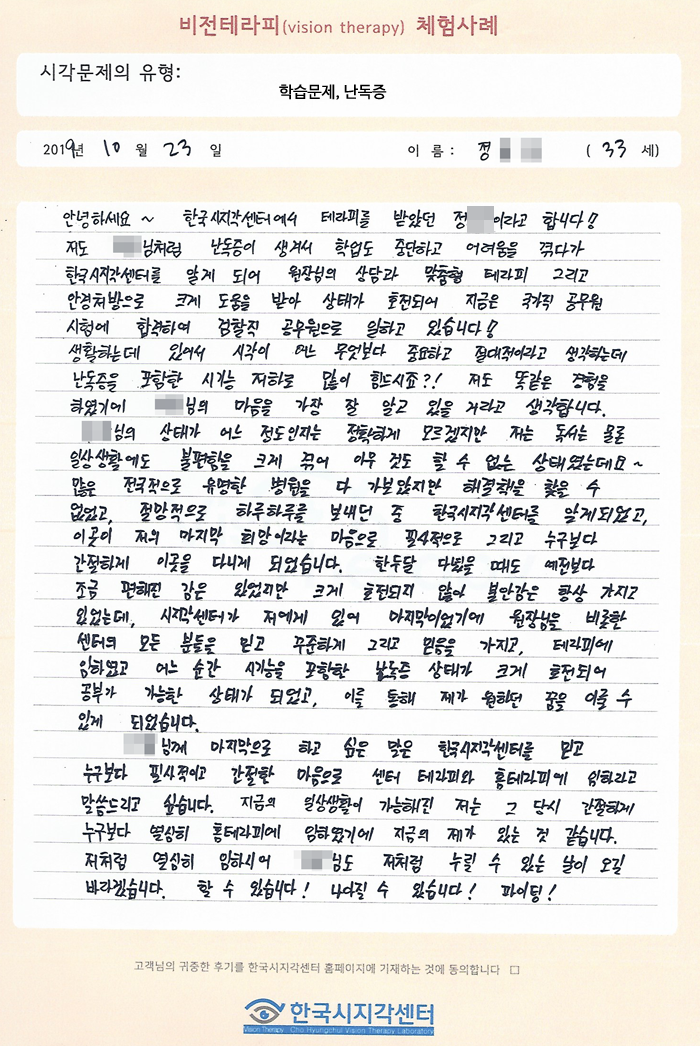 비전테라피(vision therapy) 체험사례
시각문제의 유형:
학습문제, 난독증
2019년 10 월 23 일 이 름 : 정 ( 33 세)
안녕하세요 ~ 한국시지각센터에서 테라피를 받았던 정 이라고 합니다!
저도 님처럼 난독증이 생겨서 학업도 중단하고 어려움을 겪다가
한국시지각센터를 알게 되어 원장님의 상담과 맞춤형 테라피 그리고
안경처방으로 크게 도움을 받아 상태가 호전되어 지금은 국가직 공무원
시험에 합격하여 검찰직 공무원으로 일하고 있습니다!
생활하는데 있어서 시각이 어느 무엇보다 중요하고 절대적이라고 생각하는데
난독증을 포함한 시기능 저하로 많이 힘드시죠?! 저도 똑같은 경험을
하였기에 님의 마음을 가장 잘 알고 있을 거라고 생각합니다.
님의 상태가 어느 정도인지는 정확하게 모르겠지만 저는 독서는 물론
일상생활에도 불편함을 크게 겪어 아무 것도 할 수 없는 상태였는데요~
많은 전국적으로 유명한 병원을 다 가보았지만 해결책을 찾을 수
없었고, 절망적으로 하루하루를 보내던 중 한국시지각센터를 알게되었고,
이곳이 저의 마지막 희망이라는 마음으로 필사적으로 그리고 누구보다
간절하게 이곳을 다니게 되었습니다. 한두달 다녔을 때도 예전보다
조금 편해진 감은 있었지만 크게 호전되지 않아 불안감은 항상 가지고
있었는데, 시지각센터가 저에게 있어 마지막이었기에 원장님을 비롯한
센터의 모든 분들을 믿고 꾸준하게 그리고 믿음을 가지고, 테라피에
임하였고 어느 순간 시기능을 포함한 난독증 상태가 크게 호전되어
공부가 가능한 상태가 되었고, 이를 통해 제가 원하던 꿈을 이룰 수
있게 되었습니다.
님께 마지막으로 하고 싶은 말은 한국시지각센터를 믿고
누구보다 필사적이고 간절한 마음으로 센터 테라피와 홈테라피에 임하라고
말씀드리고 싶습니다. 지금의 일상생활이 가능해진 저는 그 당시 간절하게
누구보다 열심히 홈테라피에 임하였기에 지금의 제가 있는 것 같습니다.
저처럼 열심히 임하시어 님도 저처럼 누릴 수 있는 날이 오길
바라겠습니다. 할 수 있습니다! 나아질 수 있습니다! 파이팅!
고객님의 귀중한 후기를 한국시지각센터 홈페이지에 기재하는 것에 동의합니다 □
한국시지각센터
Vision Therapy Cho Hyungchul Vision Therapy Laboratory